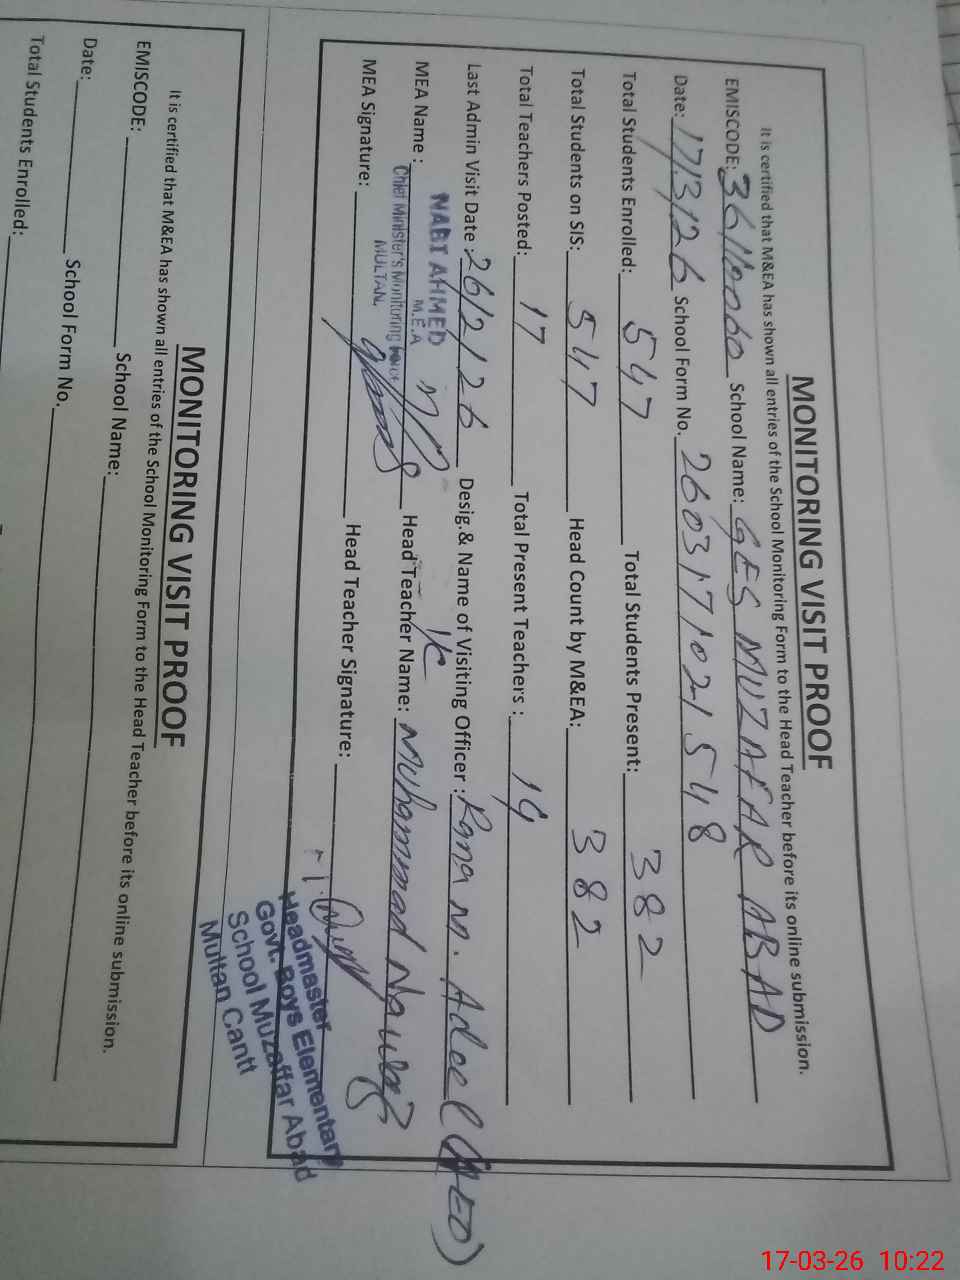 MONITORING VISIT PROOF
It is certified that M&EA has shown all entries of the School Monitoring Form to the Head Teacher before its online submission.
EMISCODE: 36110060 School Name: GES MUZAFAR ABAD
Date: 17/3/26 School Form No. 2603171021548
Total Students Enrolled: 547 Total Students Present: 382
Total Students on SIS: 547 Head Count by M&EA: 382
Total Teachers Posted: 17 Total Present Teachers :
Last Admin Visit Date : 26/2/26 Desig.& Name of Visiting Officer : Rana M. Adeel (AEO)
NABI AHMED
M.E.A
MEA Name : Head Teacher Name: Muhammad
Chief Minister's Monitoring
MULTAN.
MEA Signature: Head Teacher Signature:
Headmaster
Govt. Boys Elementary
School Muzaffar Abad
Multan Cantt
MONITORING VISIT PROOF
It is certified that M&EA has shown all entries of the School Monitoring Form to the Head Teacher before its online submission.
EMISCODE: School Name:
Date: School Form No.
Total Students Enrolled:
17-03-26 10:22